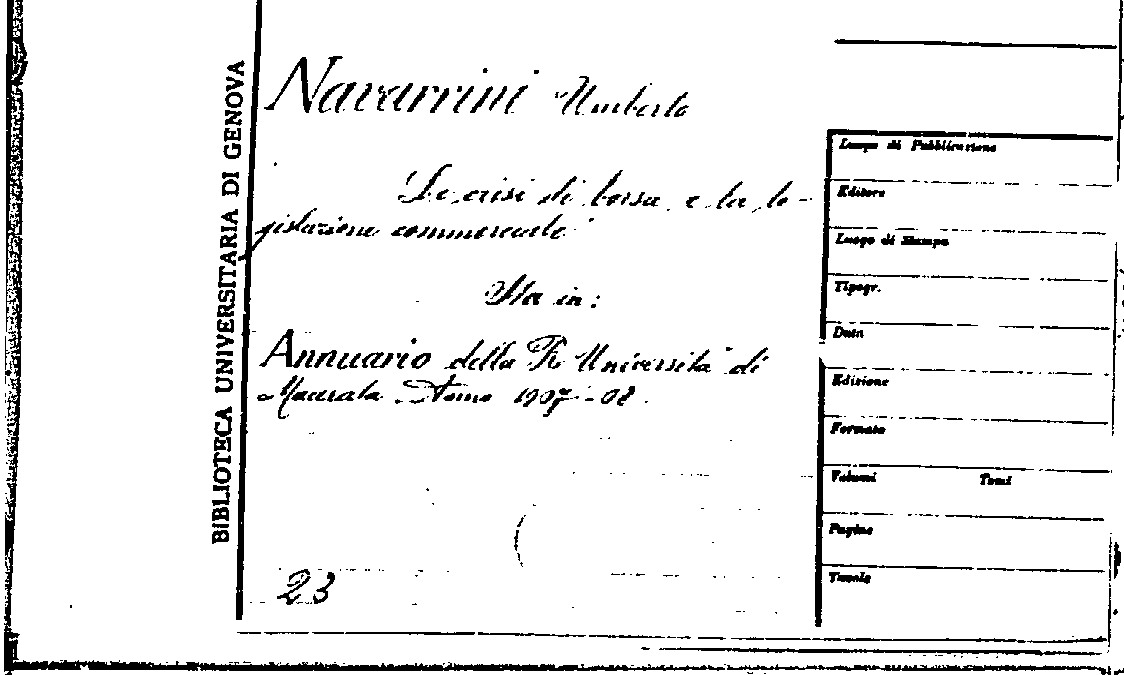 BIBLIOTECA UNIVERSITARIA DI GENOVA
Navarrini Umberto
Le crisi di borsa e la le-
gislazione commerciale
Sta in:
Annuario della R. Università di
Macerata Anno 1907-08.
23
Luogo di Pubblicazione
Editore
Luogo di Stampa
Tipogr.
Data
Edizione
Formato
Volumi Tomi
Pagine
Tavole